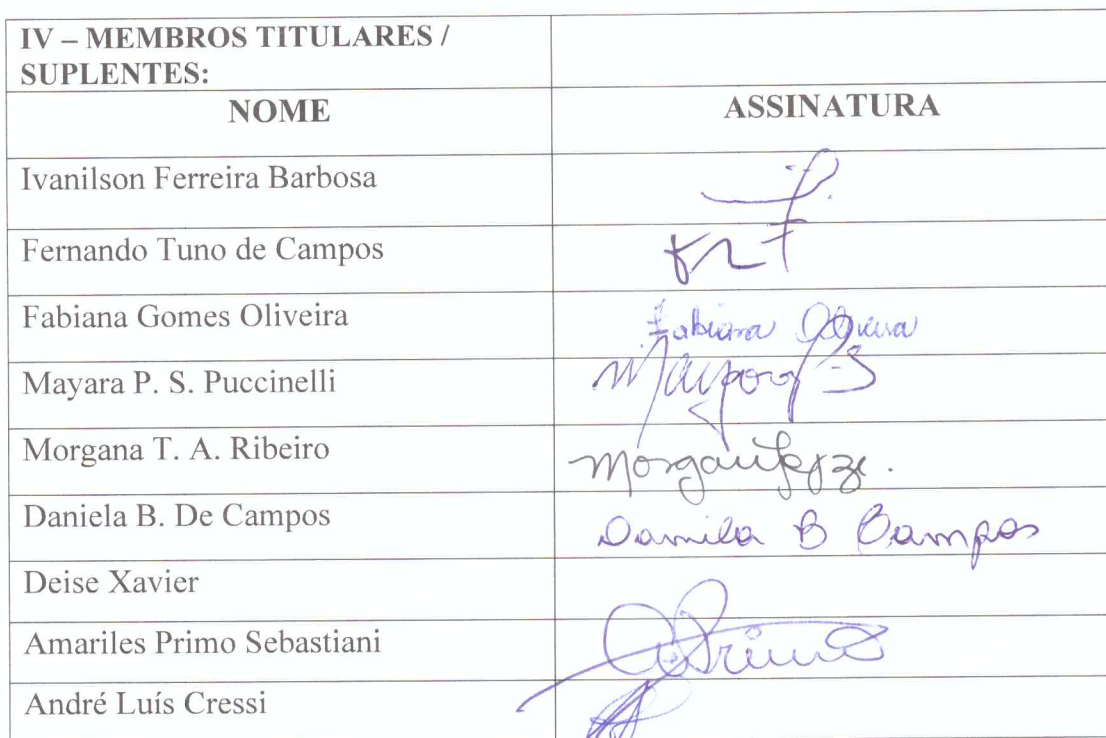 IV – MEMBROS TITULARES /
SUPLENTES:
NOME ASSINATURA
Ivanilson Ferreira Barbosa
Fernando Tuno de Campos
Fabiana Gomes Oliveira Fabiana Oliveira
Mayara P. S. Puccinelli
Morgana T. A. Ribeiro
Daniela B. De Campos Daniela B Campos
Deise Xavier
Amariles Primo Sebastiani
André Luís Cressi